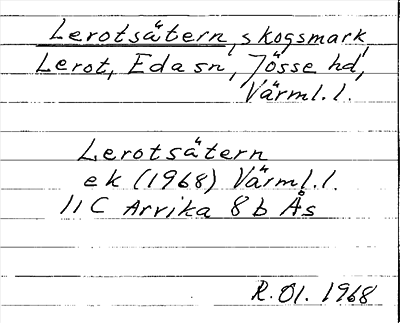 Lerotsätern, skogsmark,
Lerot, Eda sn, Jösse hd,
Värml. l.
Lerotsätern
ek (1968) Värml. l.
11 C Arvika 8 b Ås
R. Ol. 1968